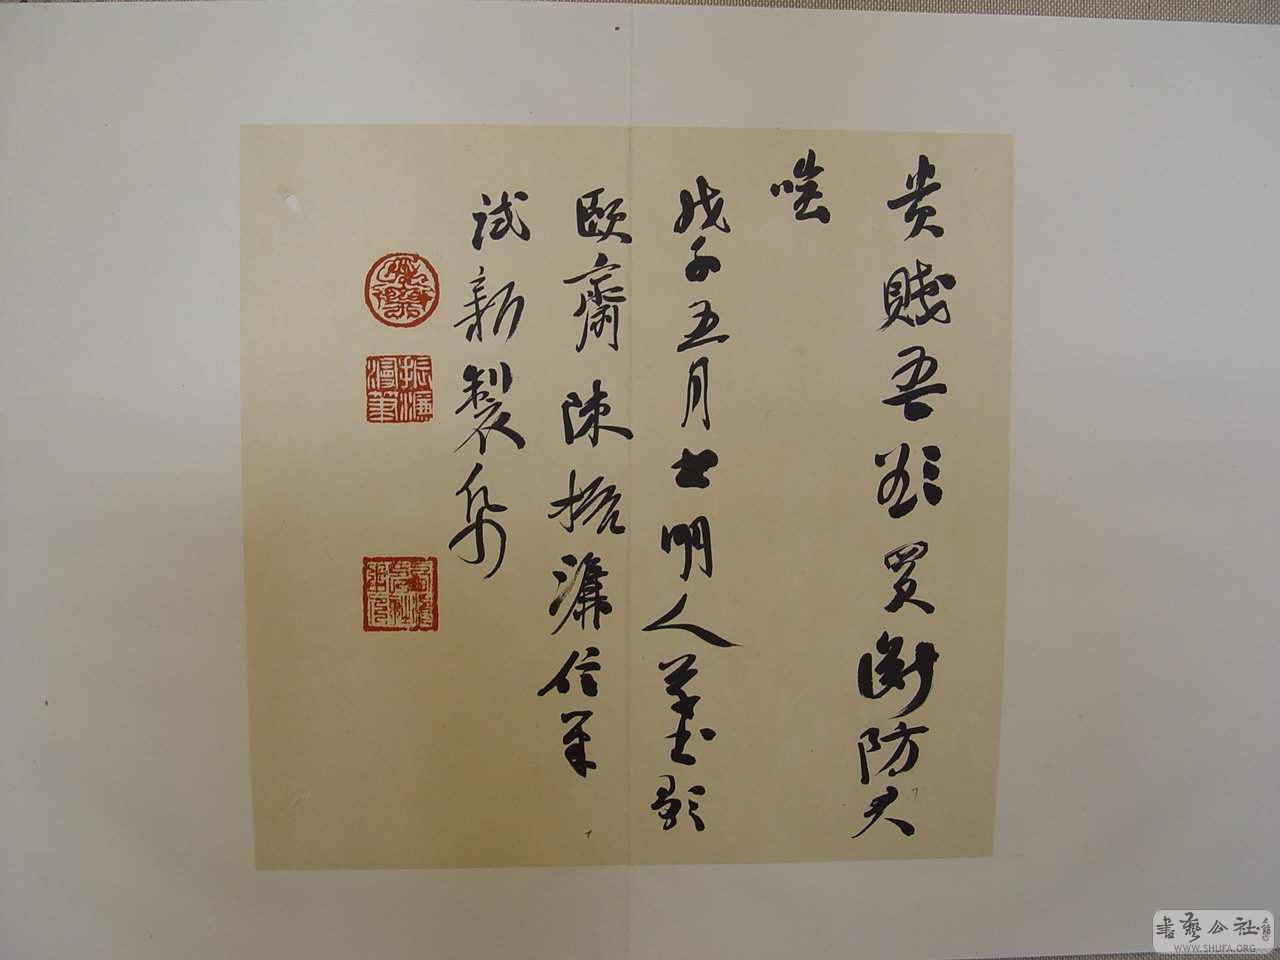 貴賤吾欲買斷防犬
噬
戊子五月書明人
頤齋陳振濂信筆
試新製帋
振濂漫筆
書藝公社
WWW.SHUFA.ORG